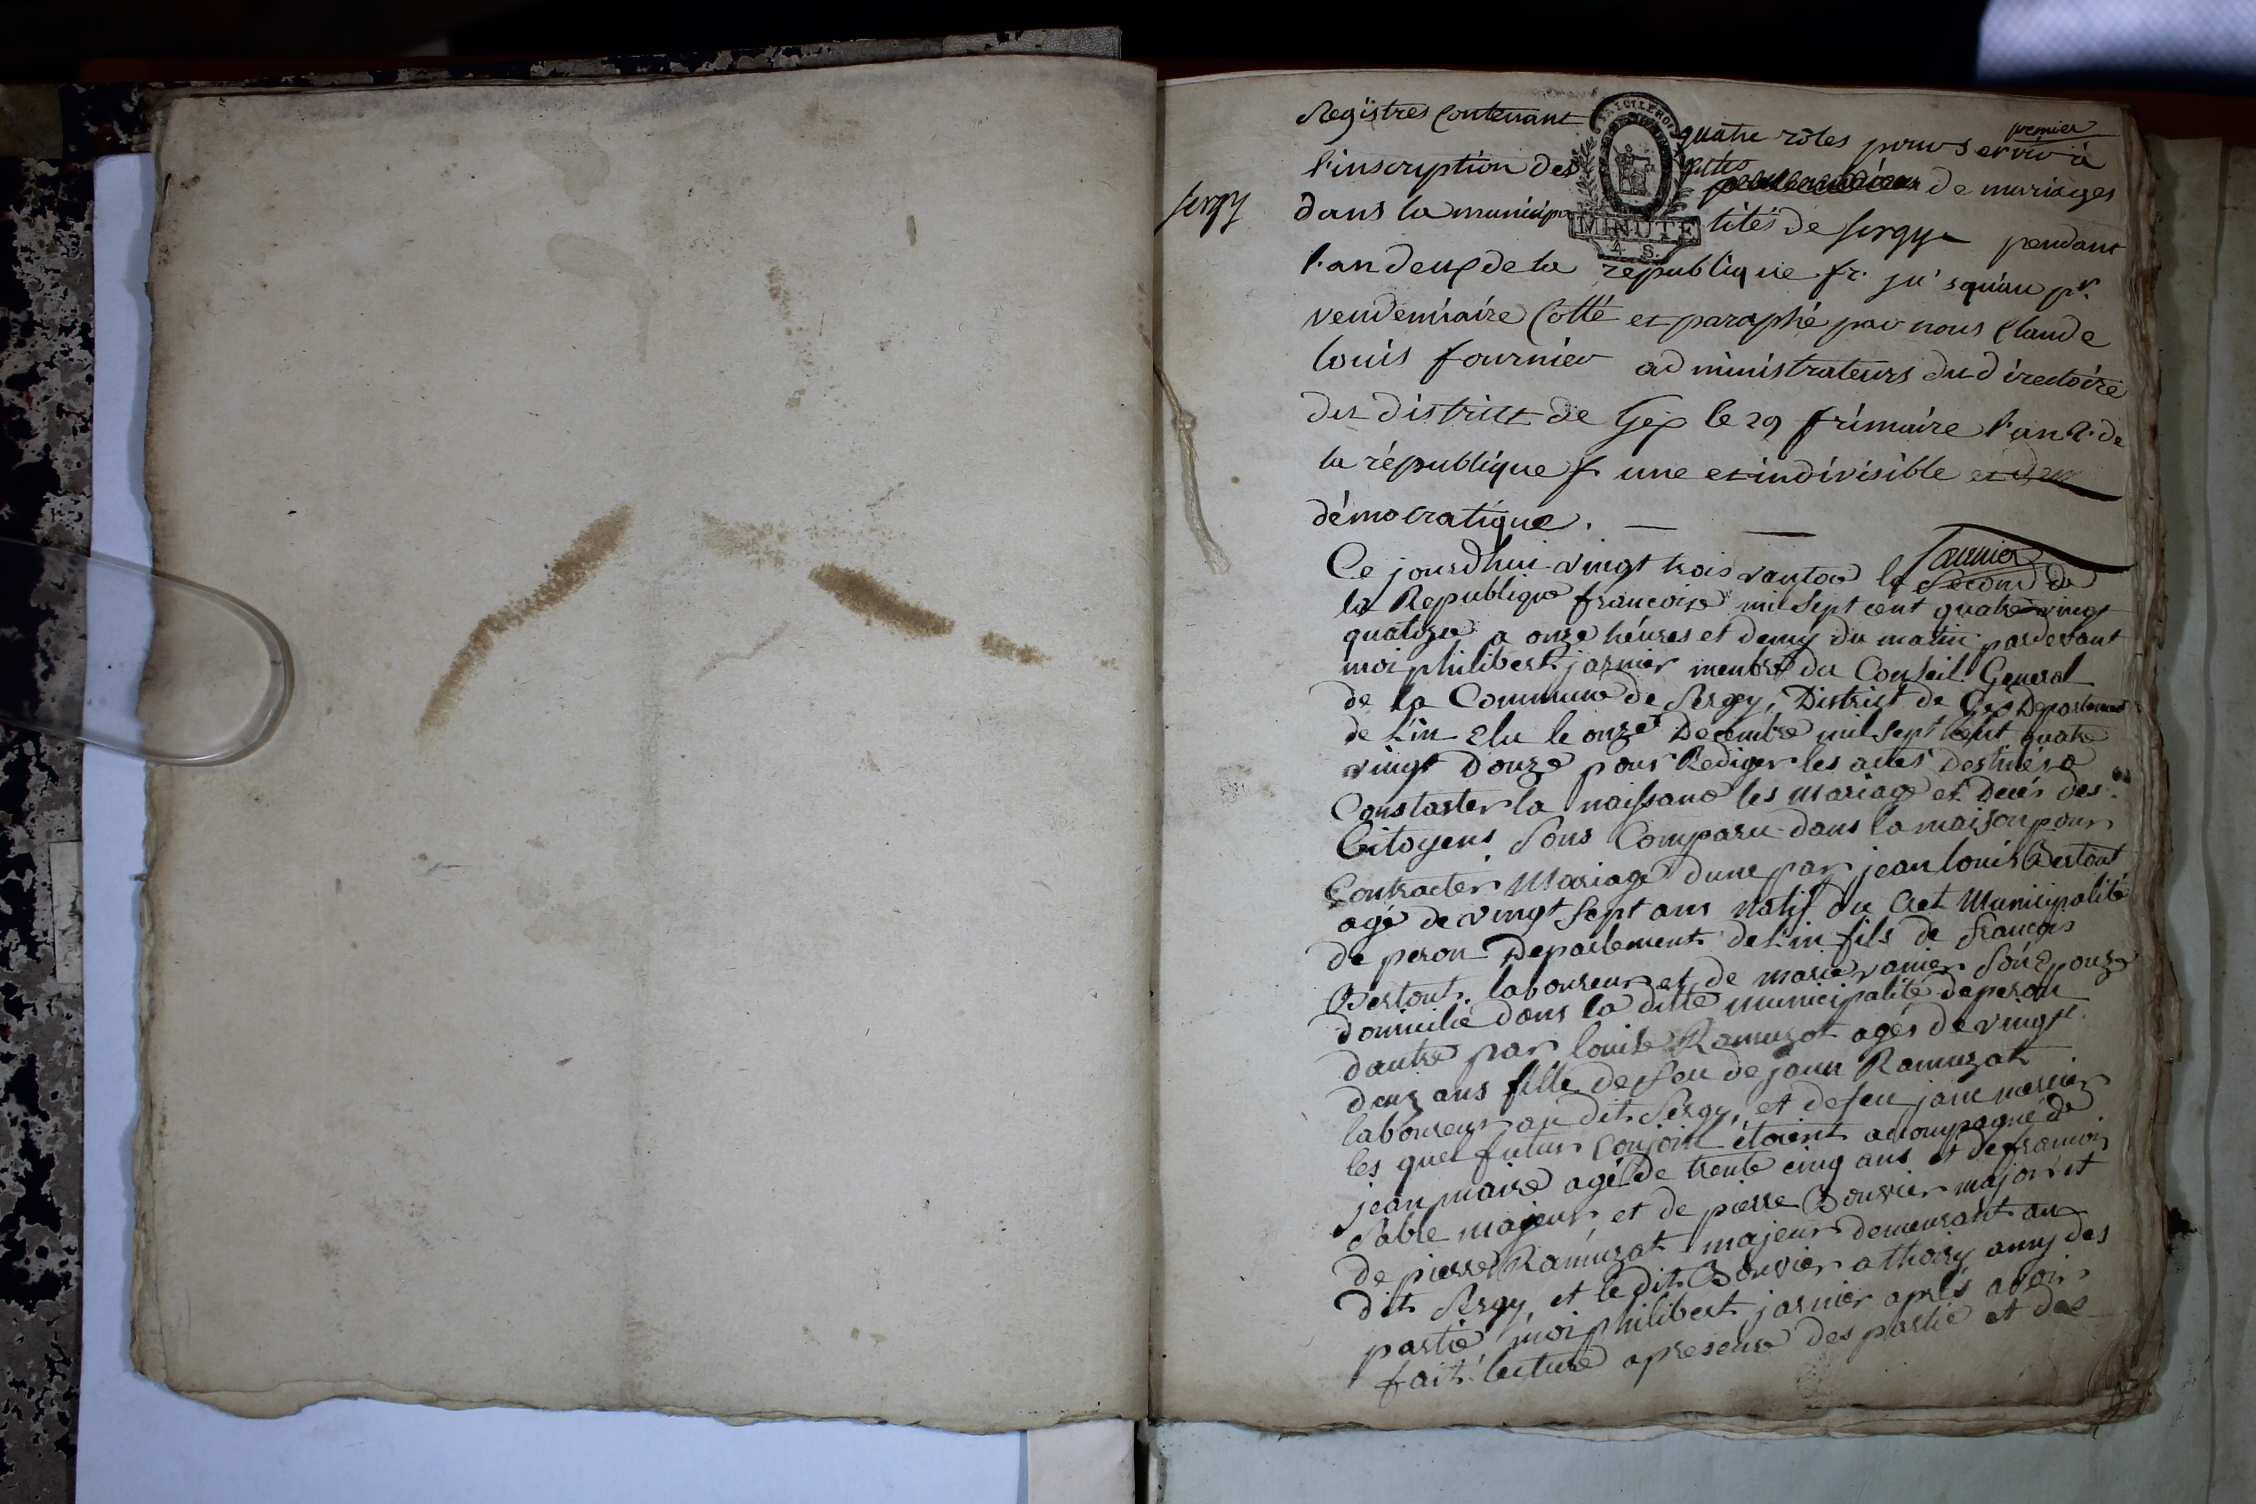 premier
Registres Contenant quatre rôles pour servir à
l'inscription des actes de mariages
Sergy
dans la municipalités de Sergy pendant
MINUTE
4 S.
l'an deux de la république fr. ju'squ'au pr.
vendemiaire Cotté et paraphé par nous Claude
louis fournier administrateurs du directoire
du district de Gex le 29 frimaire l'an 2. de
la république f. une et indivisible
démocratique.
fournier
Ce jourdhui vingt trois vantos le Second de
la Republique francoise mil Sept cent quatre vingt
quatorze a onze héures et demy du matin pardevant
moi philibert jarnier menbre du Conseil General
de la Commune de Sergy, District de Gex Departement
de Lin Elu le onze Decembre mil sept cent quatre
vingt Douze pour Rediger les actes Destinés a
Constaster la naissance les Mariage et Decés des
Citoyens Sons Comparu dans la maison pour
Contracter Mariage dune par jean louis Bertout
agé de vingt Sept ans natif du Municipalité
de peron Departement de Lin fils de francois
Bertout laboureur et de marie vanier Son Epouze
domicilié dans la ditte municipalité de peron
dautre par louise Ramuzat agés de vingt
deux ans fille de feu de jean Ramuzat
laboureur au dit Sergy, et de feu jane mercier
les quel futur conjoint étoient acompagné de
jean maire agé de trente cinq ans et de francois
Sable majeur, et de pierre Bouvier majeur et
de pierre Ramuzat majeur demeurant au
dit Sergy, et le dit Bouvier a thoiry amy des
partie moi philibert jarnier aprés avoir
fait lecture apresence des partie et des